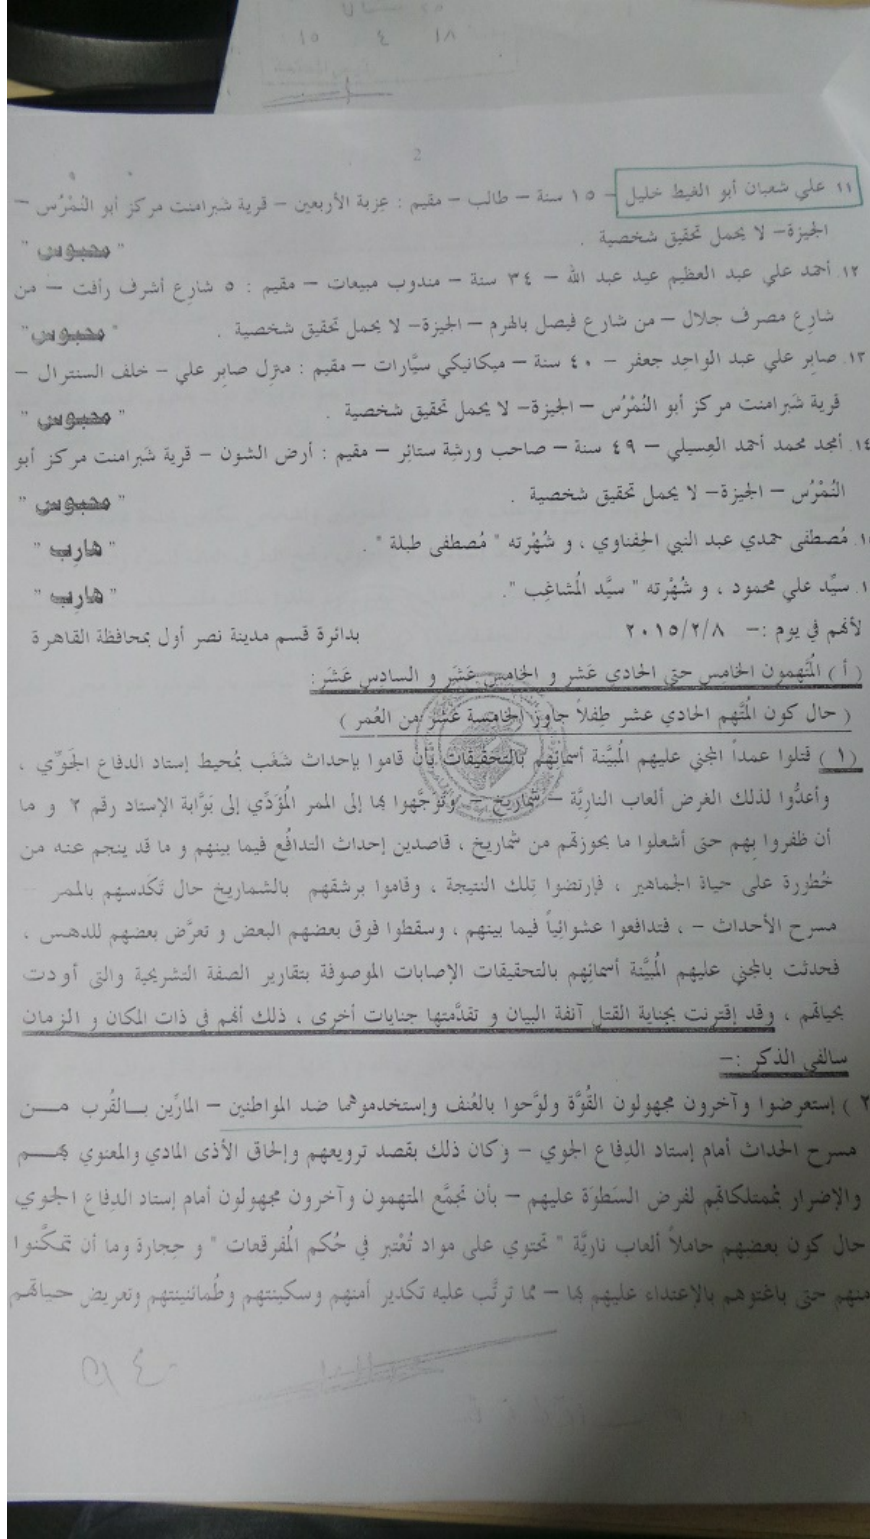 ١٨ ٤ ١٥
2
١١ علي شعبان أبو الغيط خليل – ١٥ سنة – طالب – مقيم : عِزبة الأربعين – قرية شبرامنت مركز أبو النُمْرُس –
الجيزة– لا يحمل تحقيق شخصية .
" محبوس "
١٢. أحمد علي عبد العظيم عيد عبد الله – ٣٤ سنة – مندوب مبيعات – مقيم : ٥ شارع أشرف رأفت – من
شارِع مصرف جلال – من شارع فيصل بالهرم – الجيزة– لا يحمل تحقيق شخصية .
" محبوس "
١٣. صابِر علي عبد الواحِد جعفر – ٤٠ سنة – ميكانيكي سيَّارات – مقيم : منزِل صابِر علي – خلف السنترال –
قرية شَبرامنت مركز أبو النُمْرُس – الجيزة– لا يحمل تحقيق شخصية .
" محبوس "
١٤. أمجد محمد أحمد العِسيلي – ٤٩ سنة – صاحب ورشِة ستائِر – مقيم : أرض الشون – قرية شَبرامنت مركز أبو
النُمْرُس – الجيزة– لا يحمل تحقيق شخصية .
" محبوس "
مُصطفى حمدي عبد النبي الحِفناوي ، و شُهْرته " مُصطفى طبلة " .
" هارِب "
سيِّد علي محمود ، و شُهْرته " سيَّد المُشاغِب ".
" هارِب "
لأنهم في يوم :– ٢٠١٥/٢/٨ بدائرة قسم مدينة نصر أول بمحافظة القاهرة
( أ ) المُتَّهمون الخامس حتى الحادي عَشر و الخامِس عَشَر و السادِس عَشَر :
( حال كون المُتَّهم الحادي عشر طِفلاً جاوز الخامِسة عَشَرَ من العُمر )
(١) قتلوا عمداً المجني عليهم المُبيَّنة أسمائِهم بالتحقيقات بأن قاموا بإحداث شَغَب بمُحيط إستاد الدفاع الجَوِّي ،
وأعدُّوا لذلك الغرض ألعاب الناريَّة – شماريخ – وتوجَّهوا بها إلى الممر المُؤَدِّي إلى بَوَّابة الإستاد رقم ٢ و ما
أن ظفروا بِهم حتى أشعلوا ما بحوزتهم من شماريخ ، قاصدين إحداث التدافُع فيما بينهم و ما قد ينجم عنه من
خُطورة على حياة الجماهير ، فإرتضوا تِلك النتيجة ، وقاموا برشقهم بالشماريخ حال تَكَدسهم بالممر –
مسرح الأحداث – ، فتدافعوا عشوائِياً فيما بينهم ، وسقطوا فوق بعضهم البعض و تعرَّض بعضهم للدهس ،
فحدثت بالمجني عليهم المُبيَّنة أسمائِهم بالتحقيقات الإصابات الموصوفة بتقارير الصفة التشريحية والتى أودت
بحياتهم ، وقد إقترنت بجناية القتل آنفة البيان و تقدَّمتها جنايات أخرى ، ذلك أنهم في ذات المكان و الزمان
سالفي الذكر :–
٢ ) إستعرضوا وآخرون مجهولون القُوَّة ولوَّحوا بالعُنف وإستخدموهما ضد المواطنين – المارِّين بالقُرب من
مسرح الحداث أمام إستاد الدِفاع الجوي – وكان ذلك بقصد ترويعهم وإلحاق الأذى المادي والمعنوي بهم
والإضرار بمُمتلكاتهم لفرض السَطوَة عليهم – بأن تجمَّع المتهمون وآخرون مجهولون أمام إستاد الدِفاع الجوي
حال كون بعضِهم حامِلاً ألعاب ناريَّة " تحتوي على مواد تُعْتبر في حُكم المُفرقعات " و حِجارة وما أن تمكَّنوا
منهم حتى باغتوهم بالإعتداء عليهم بها – مما ترتَّب عليه تكدير أمنهم وسكينتهم وطُمائنينتهم وتعريض حياتهم